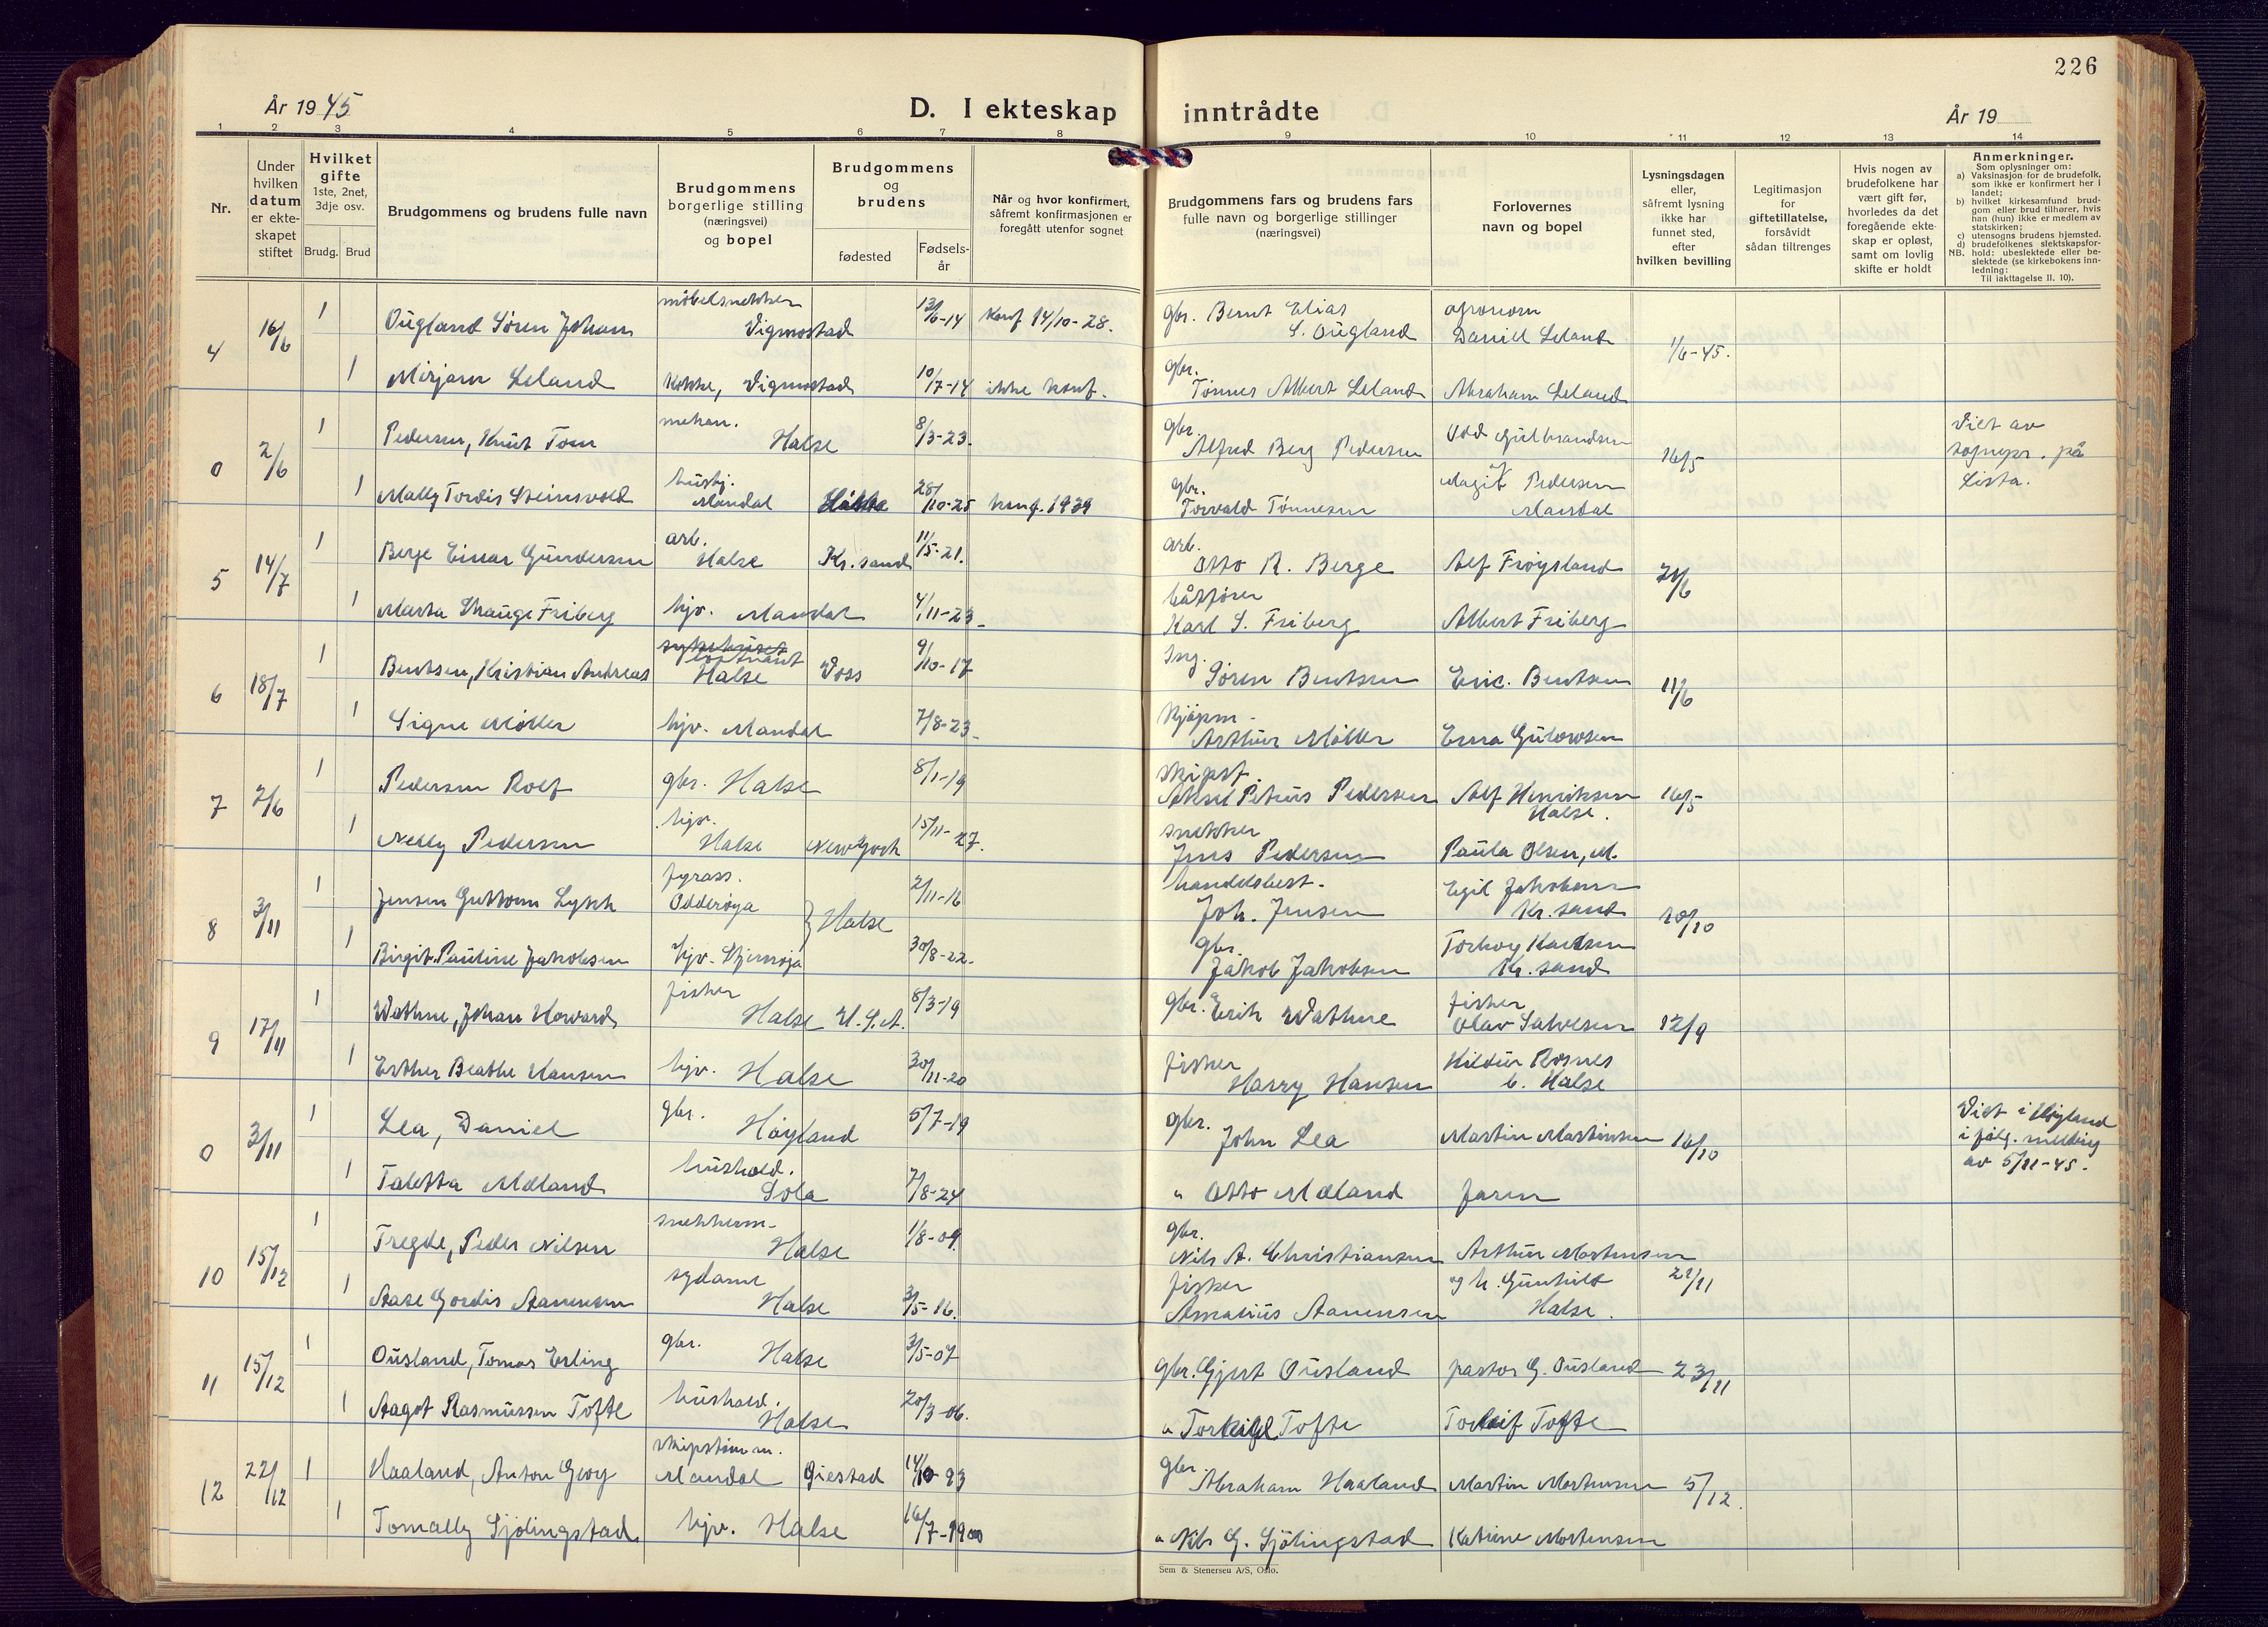 226
År 1945
D. I ekteskap inntrådte
År 19
1 2 3 4 5 6 7 8 9 10 11 12 13 14
Nr.
Under hvilken datum er ekte-skapet stiftet
Hvilket gifte 1ste, 2net, 3dje osv.
Brudg. Brud
Brudgommens og brudens fulle navn
Brudgommens borgerlige stilling (næringsvei) og bopel
Brudgommens og brudens
fødested
Fødsels-år
Når og hvor konfirmert, såfremt konfirmasjonen er foregått utenfor sognet
Brudgommens fars og brudens fars fulle navn og borgerlige stillinger (næringsvei)
Forlovernes navn og bopel
Lysningsdagen eller, såfremt lysning ikke har funnet sted, efter hvilken bevilling
Legitimasjon for giftetillatelse, forsåvidt sådan tiltrenges
Hvis nogen av brudefolkene har vært gift før, hvorledes da det foregående ekte-skap er opløst, samt om lovlig skifte er holdt
Anmerkninger.
Som oplysninger om:
a) Vaksinasjon for de brudefolk, som ikke er konfirmert her i landet;
b) hvilket kirkesamfund brud-gom eller brud tilhører, hvis han (hun) ikke er medlem av statskirken;
c) utensogns brudens hjemsted.
d) brudefolkenes slektskapsfor-hold: ubeslektede eller be-slektede (se kirkebokens inn-ledning:
NB. Til iakttagelse II. 10).
4 16/6 1 Øugland Søren Johan møbelsnekker Vigmostad 13/6-14 Konf 14/10-28. gbr. Bernt Elias S. Øugland agronom Daniel Leland 1/6-45.
1 Mirjam Leland kokke, Vigmostad 10/7-14 ikke konf. gbr. Tønnes Albert Leland Abraham Leland
0 2/6 1 Pedersen, Knut Tom mekan. Halse 8/3-23. gbr. Alfred Berg Pedersen Odd Gulbrandsen 16/5 Viet av sognepr. på Lista.
1 Mally Tordis Steinsvold husbj. Mandal 28/10-25 konf. 1939 gbr. Torvald Tønnesen Magit Pedersen Mandal
5 14/7 1 Berge Einar Gundersen arb. Halse Kr.sand 11/5-21. arb. Otto R. Berge Alf Frøysland 21/6
1 Marta Skauge Friberg hjv. Mandal 4/11-23- båtfører Karl S. Friberg Albert Friberg
6 18/7 1 Bentsen, Kristian Andreas løitnant Halse Voss 9/10-17 Ing. Søren Bentsen Eric. Bentsen 11/6
1 Signe Møller hjv. Mandal 7/8-23- Kjøpm- Arthur Møller Erna Gulowsen
7 2/6 1 Pedersen Rolf gbr. Halse 8/1-19 skipsf. Aksel Petrus Pedersen Alf Henriksen Halse. 16/5
1 Nelly Pedersen hjv. Halse New York 15/11-27. snekker Jens Pedersen Paula Olsen, M.
8 3/11 1 Jensen Guttorm Lykk fyrass. Odderøya } Halse 2/11-16 handelsbest. Joh. Jensen Egil Jakobsen Kr.sand 10/10
1 Birgit Pauline Jakobsen hjv. Skjernøya 30/8-22- gbr. Jakob Jakobsen Torborg Karlsen Kr.sand
9 17/11 1 Wathne, Johan Howard fisker Halse U.S.A. 8/3-19 gbr. Erik Wathne fisker Olav Salvesen 12/9
1 Esther Beathe Hansen hjv. Halse 30/11-20 fisker Harry Hansen Hildur Rosnes b. Halse
0 3/11 1 Lea, Daniel gbr. Høyland 5/7-19 gbr. John Lea Martin Martinsen 16/10 Viet i Høyland i følg. melding av 5/11-45.
1 Taletta Mæland hushold. Sola 7/8-24 " Otto Mæland Jaren
10 15/12 1 Tregde, Peder Nilsen snekkerm- Halse 1/8-09. gbr. Nils A. Christiansen Arthur Mortensen 21/11
1 Aase Gordis Aanensen sydame Halse 3/5-16. fisker Amalius Aanensen og h. Gunhild Halse.
11 15/12 1 Øusland, Tomas Erling gbr. Halse 3/5-07 gbr. Gjert Øusland pastor G. Øusland 23/11
1 Aagot Rasmussen Tofte hushold. Halse 20/3-06. " Torkild Tofte Torleif Tofte
12 22/12 1 Haaland, Anton Georg skipstimm. Mandal Giestad 14/10-93 gbr. Abraham Haaland Martin Mortensen 5/12.
1 Tomally Sjölingstad hjv. Halse 16/7-1900 " Nils G. Sjölingstad Katrine Mortensen
Sem & Stenersen A/S, Oslo.